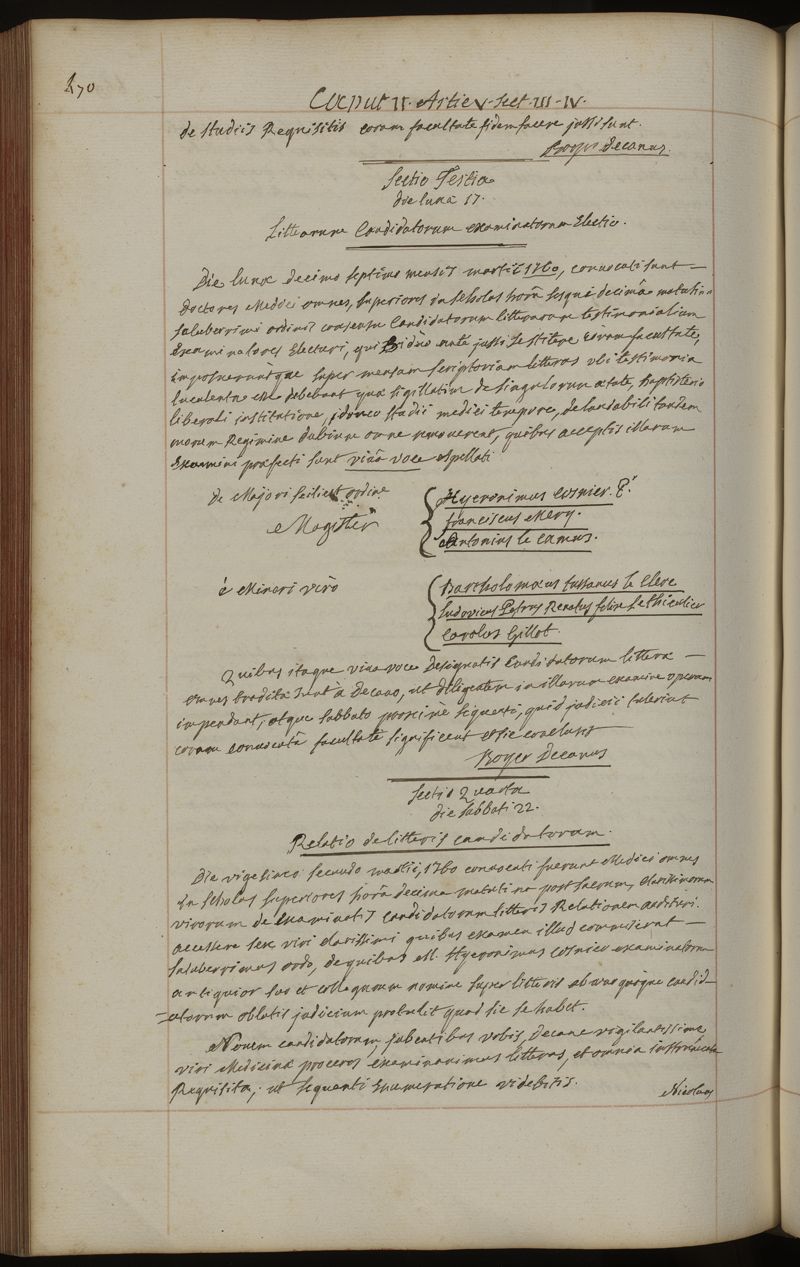 270
Caput II. Artic V. Sect. III-IV.
de studiis Requisitis coram facultate fidem facere jussi sunt.
Boyer decanus.
Sectio Tertia
die lunæ 17.
Litterarum Candidatorum examinatorum Electio.
Die lunæ decimo septimo mensis martii 1760, convocati sunt
doctores Medici omnes, superiores in scholas horâ sesqui decimâ matutina
saluberrimi ordinis consensu Candidatorum litterarum testimonialium
Examinatores Electuri, qui biduo ante jussi se sistere coram facultate,
imposuerunt que super mensam scriptoriam litteras ubi testimonia
luculenta esse debebant quæ sigillatim de singulorum ætate, Baptisterio
liberali institutione, idoneo studii medici tempore, de laudabili tandem
morum Regimine dubium omne removerent, quibus acceptis illarum
Examini præfecti sunt vivâ voce appellati
de Majori scilicet ordine
Magister
Hyeronimus Cosnier. P.
franciscus Mery.
Antonius le Camus.
è Minori verò
Bartholomæus tussanus le Clerc
Ludovicus Petrus Renatus felix le thieullier
Carolus Gillot.
Quibus itaque viva voce Designatis Candidatorum litteræ
omnes traditæ sunt à Decano, ut diligentem in illarum examine operam
impendant, atque sabbato proximè sequenti, quid judicii tulerint
coram convocatâ facultate significent et sic conclusit
Boyer Decanus
Sectio Quarta
die sabbati 22.
Relatio de litteris candidatorum.
Die vigesimo secundo martii, 1760 convocati fuerunt Medici omnes
in scholas superiores horâ decima matutina post sacrum, clarissimorum
virorum de examinatis candidatorum litteris Relationem audituri.
accessere sex viri clarissimi quibus examen illud commiserat
saluberrimus ordo, de quibus M. Hyeronimus Cosnier examinatorum
antiquior suo et collegarum nomine super litteris ab unoquoque candid-
=atorum oblatis judicium protulit quod sic se habet.
Novem candidatorum, jubentibus vobis, Decane vigilantissime
viri Medicinæ proceres examinavimus litteras, et omnia instrumenta
Requisita, ut sequenti Enumeratione videbitis.
Nicolaus